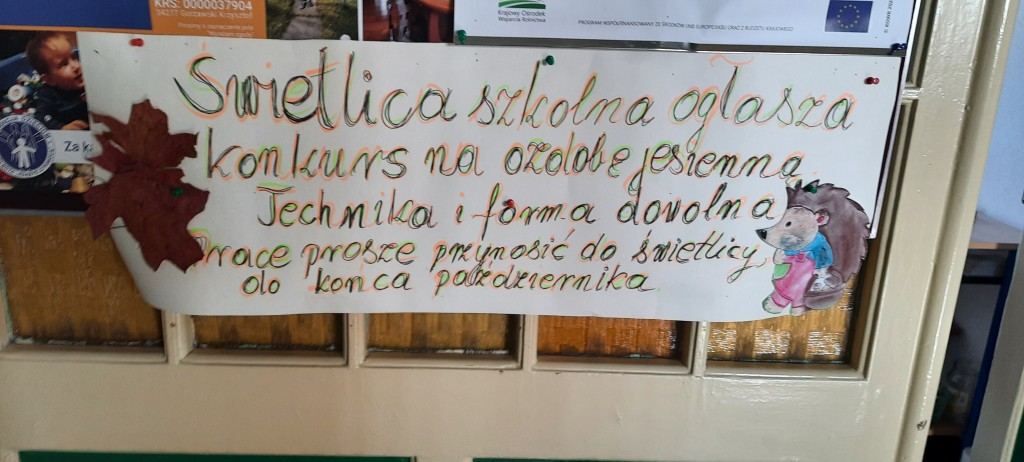 KRS: 0000037904
24177 Gorzawski Krzysztof
Krajowy Ośrodek
Wsparcia Rolnictwa
PROGRAM WSPÓŁFINANSOWANY ZE ŚRODKÓW UNII EUROPEJSKIEJ ORAZ Z BUDŻETU KRAJOWEGO
Za
Świetlica szkolna ogłasza
konkurs na ozdobę jesienną
Technika i forma dowolna
Prace proszę przynosić do świetlicy,
do końca października